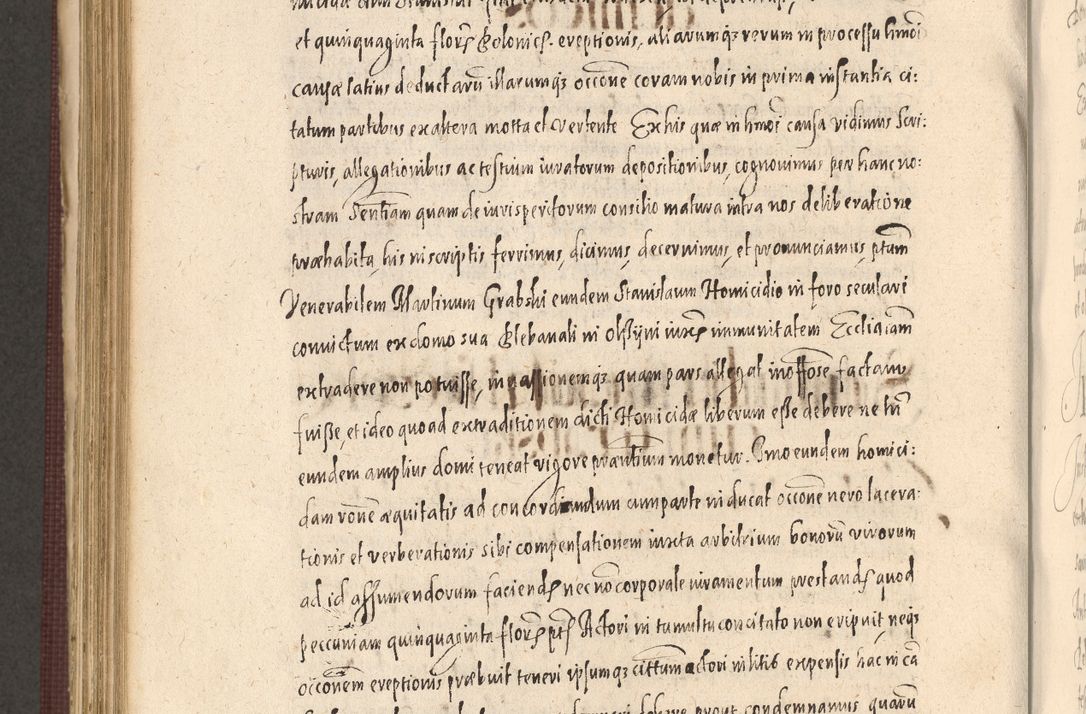 et quinquaginta floreṣ Polonicẹ. ereptionis, aliarumq3 rerum in processu hmoi
causæ latius deductarū illarumq3 occōne coram nobis in prima instantia ci:
tatum partibus ex altera mota et vertente Ex his quæ in hmoi causa vidimus Scri:
pturis, allegationibus ac testium iuratorum depositionibus, cognovimus per hanc no:
stram Sentiam quam de iurisperitorum consilio matura intra nos deliberatione
præhabita, his in scriptis ferrimus, dicimus, decernimus, et pronunciamus, ptum
Venerabilem Martinum Grabski eundem Stanislaum Homicidio in foro seculari
convictum ex domo sua Plebanali in Olssyni iuxta immunitatem Eccliacam
extradere non potuisse, quam pars allegat inoffose factam
fuisse, et ideo quoad extraditionem dicti Homicidæ liberum esse debere ne tn
eundem amplius domi teneat vigore præntium monetur. Imo eundem homici:
dam rōne æquitatis ad concordandum cum parte inducat occōne vero lacera:
tionis et verberationis sibi compensationem iuxta arbitrium bonorū virorum
ad id assumendorum faciendẹ necnō corporale iuramentum prestandẹ quod
peccuniam quinquaginta floreṣ ptẹ Actori in tumultu concitato non eripuit, neq3
occōnem ereptionis præbuit teneri ipsumq3 cittum actori in litis expensis hac in cā
prout condemnamus quarū